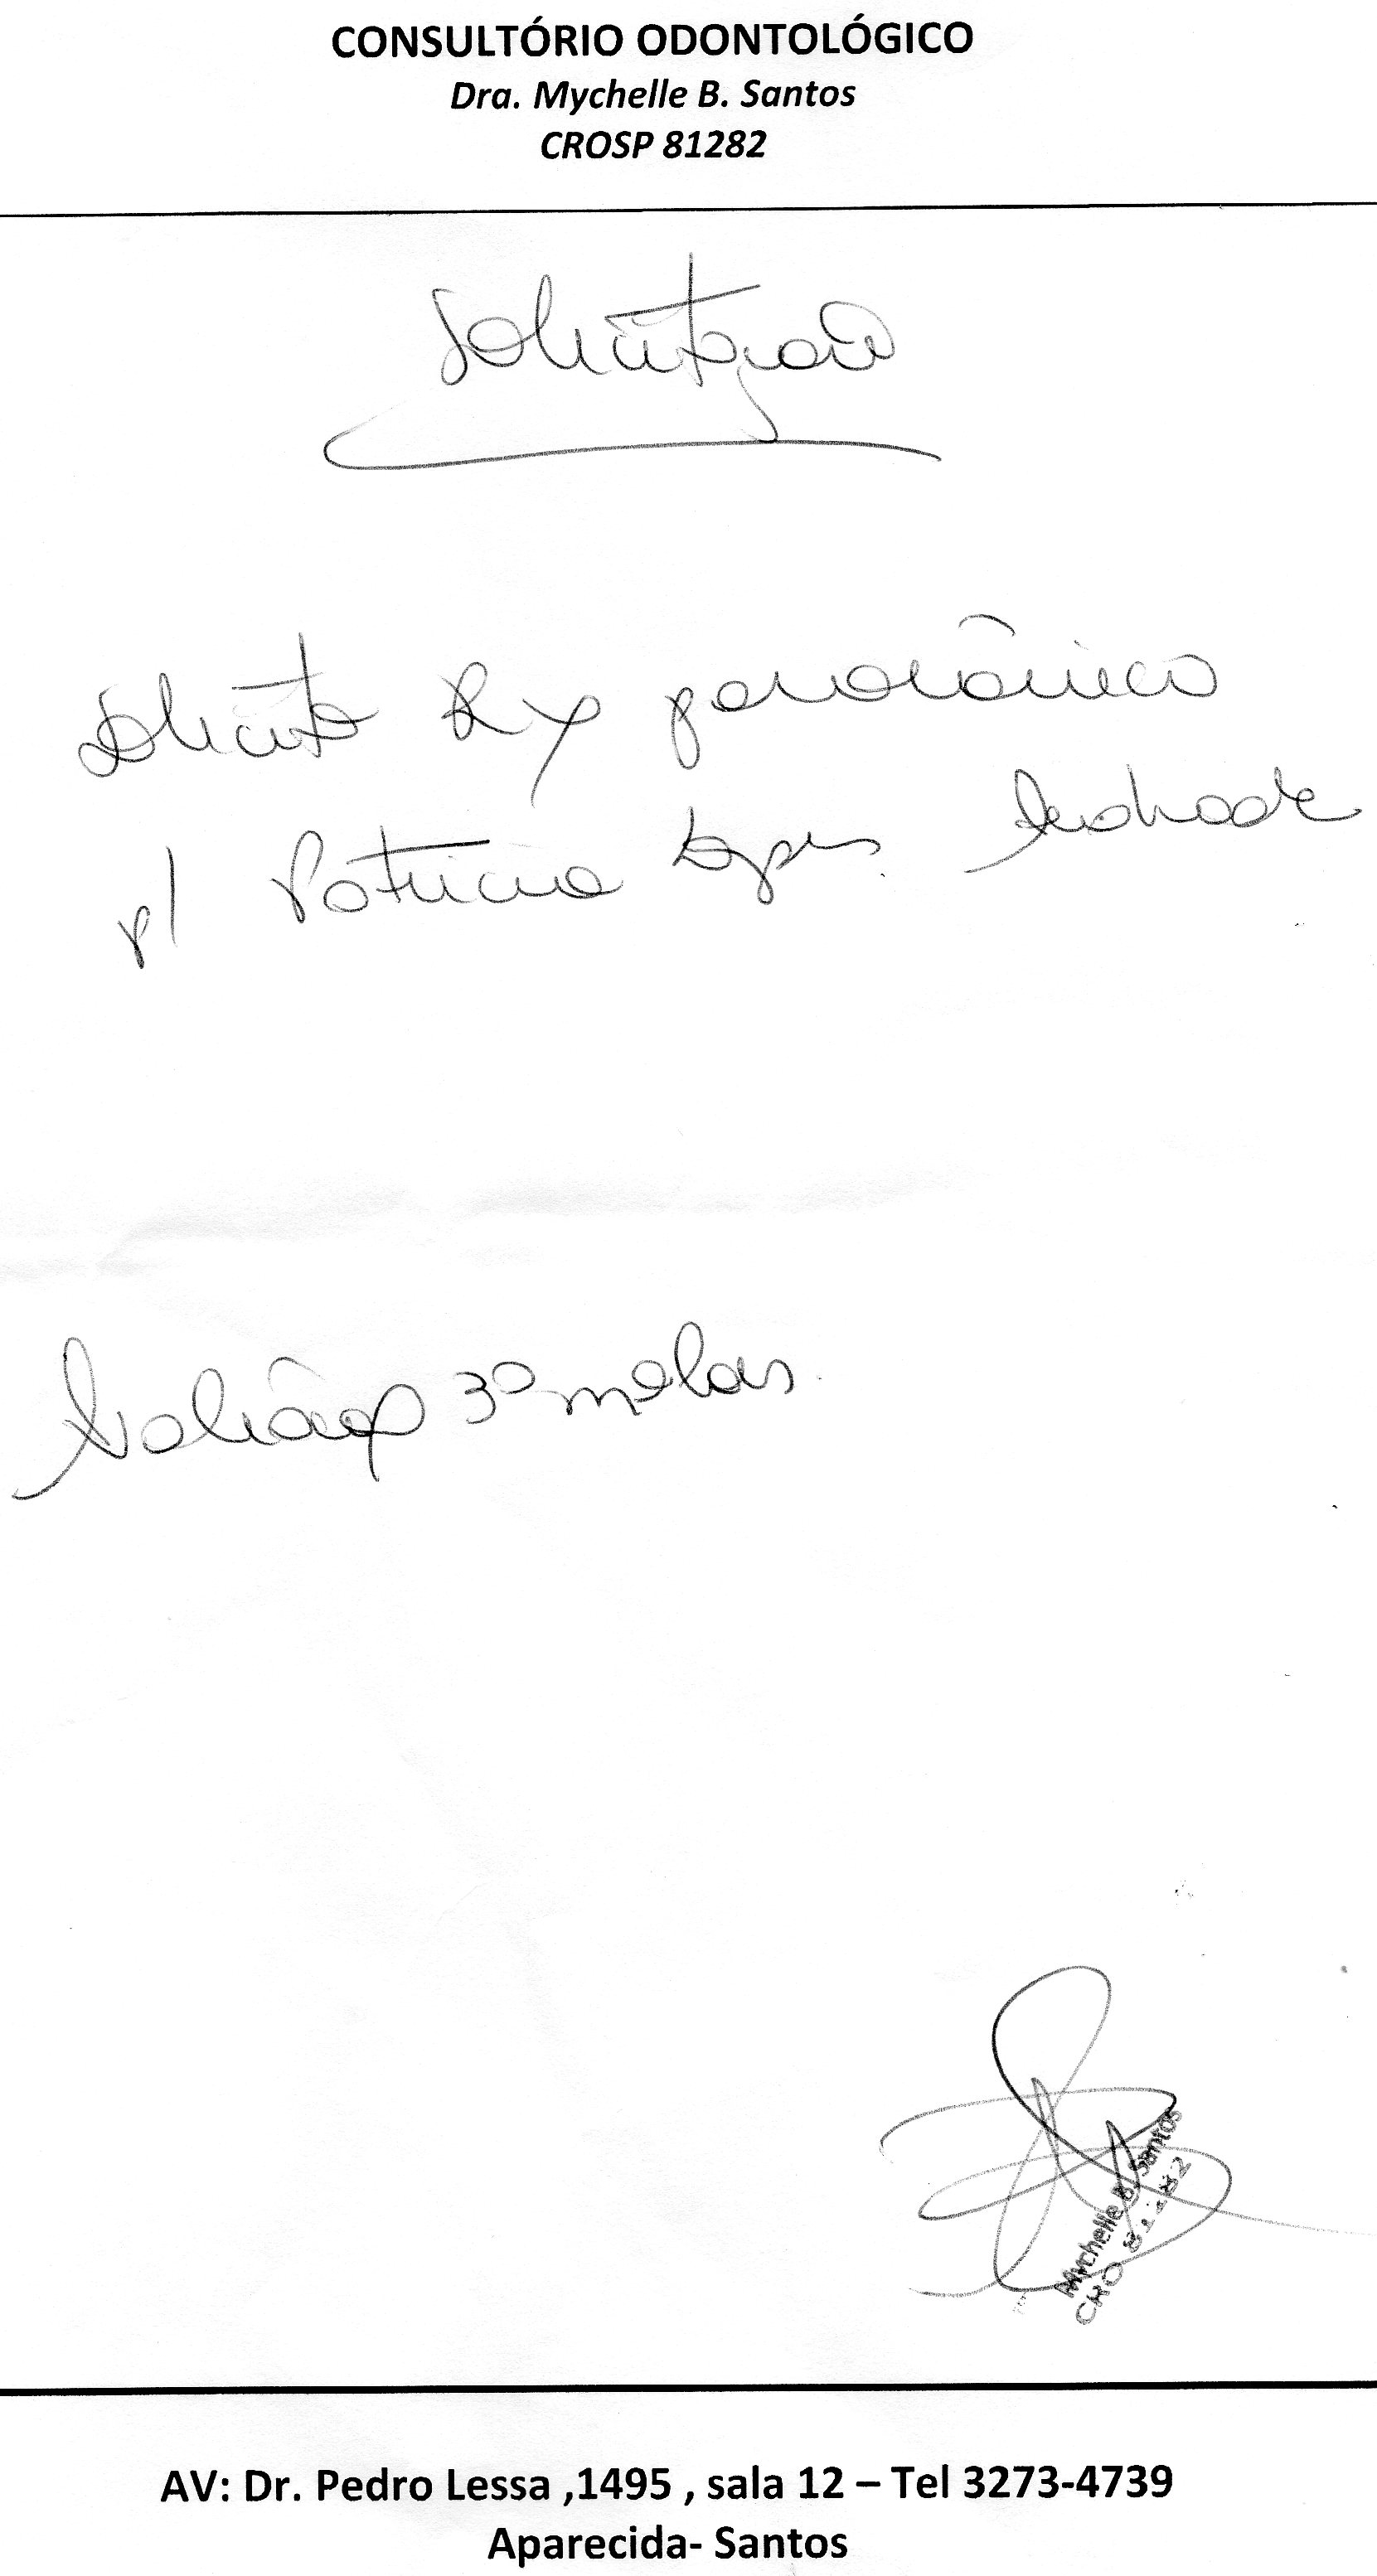 CONSULTÓRIO ODONTOLÓGICO
Dra. Mychelle B. Santos
CROSP 81282
Solicitação
Solicito Rx panorâmico
p/ Patricia Lopes Andrade
Avaliação 3º molars.
Mychelle B. Santos
CRO 81282
AV: Dr. Pedro Lessa ,1495 , sala 12 – Tel 3273-4739
Aparecida- Santos